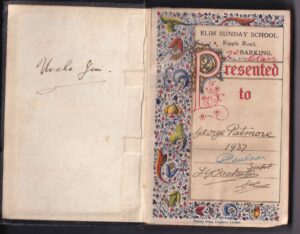 Uncle Jim.
ELIM SUNDAY SCHOOL,
Ripple Road,
BARKING.
Class
Presented
to
George Patmore
1937
Supt
Sec